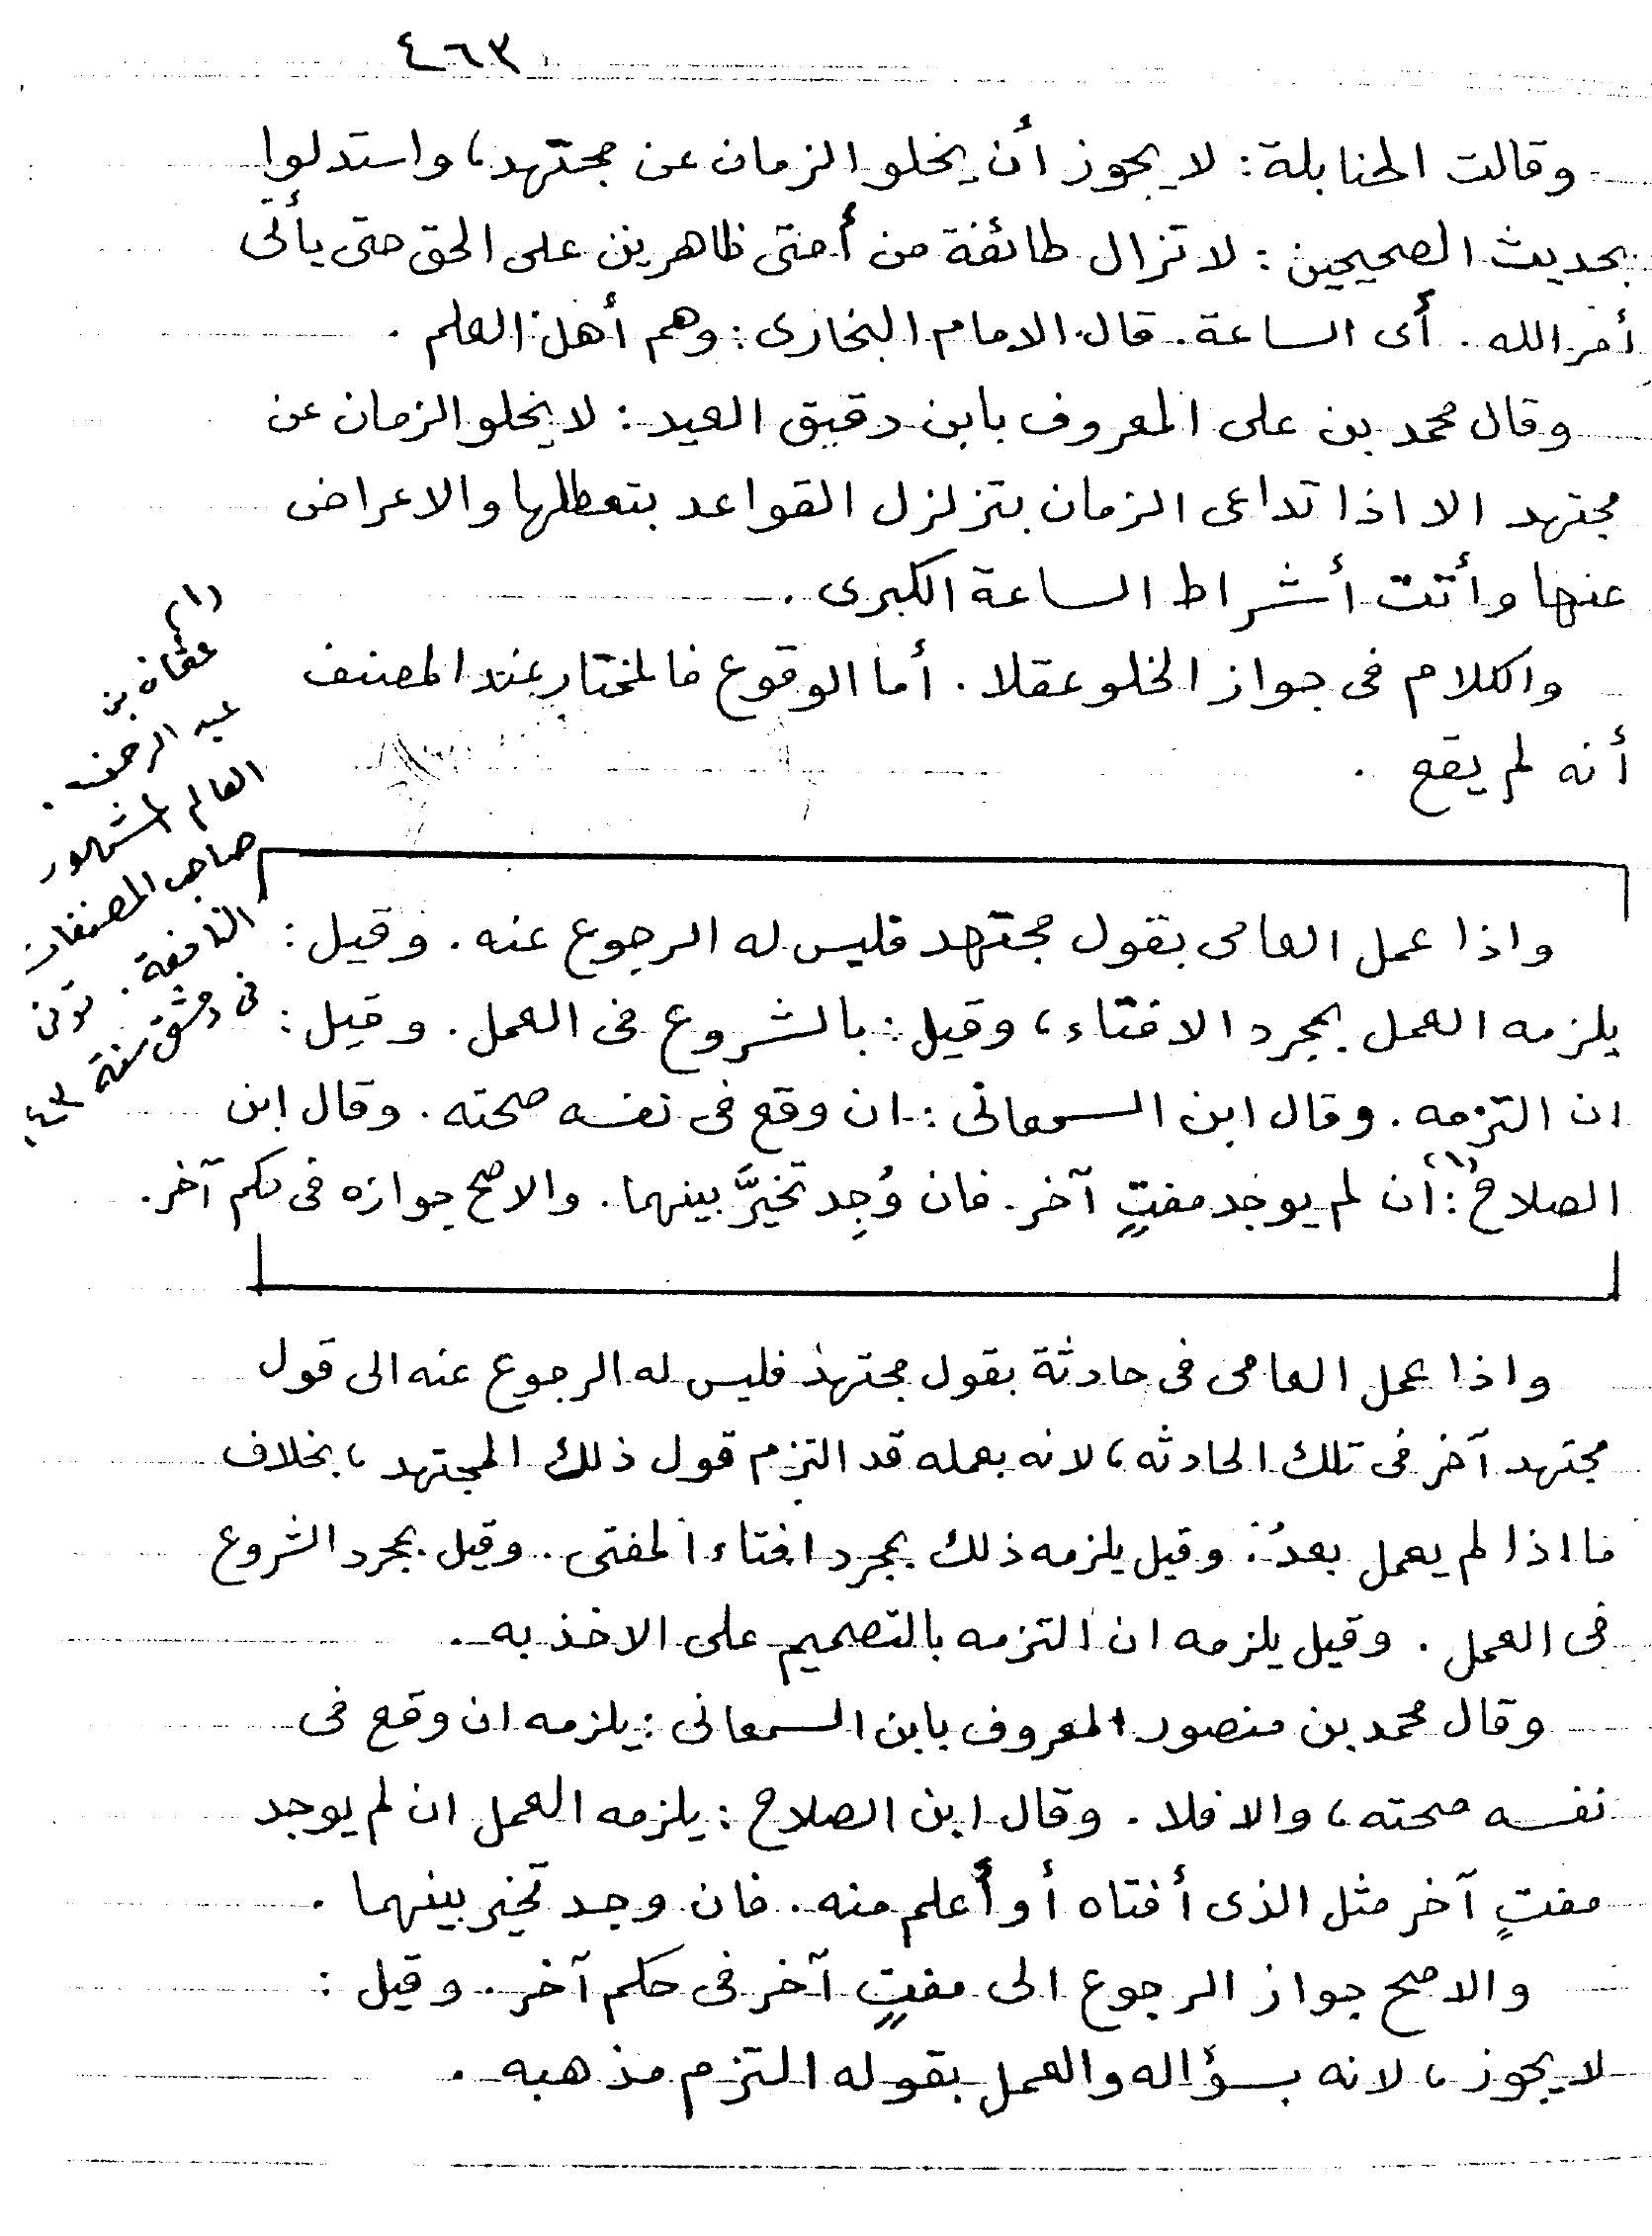 ٤٦٣
وقالت الحنابلة: لا يجوز أن يخلو الزمان عن مجتهد، واستدلوا
بحديث الصحيحين: لا تزال طائفة من أمتى ظاهرين على الحق حتى يأتى
أمر الله. أى الساعة. قال الامام البخارى: وهم أهل العلم.
وقال محمد بن على المعروف بابن دقيق العيد: لا يخلو الزمان عن
مجتهد الا اذا تداعى الزمان بتزلزل القواعد بتعطلها والاعراض
عنها وأتت أشراط الساعة الكبرى.
والكلام فى جواز الخلو عقلا. أما الوقوع فالمختار عند المصنف
أنه لم يقع.
واذا عمل العامى بقول مجتهد فليس له الرجوع عنه. وقيل:
يلزمه العمل بمجرد الافتاء، وقيل: بالشروع فى العمل. وقيل:
ان التزمه. وقال ابن السمعانى: ان وقع فى نفسه صحته. وقال ابن
الصلاح (١): أن لم يوجد مفتٍ آخر. فان وُجِد تخيَّر بينهما. والاصح جوازه فى حكم آخر.
واذا عمل العامى فى حادثة بقول مجتهد فليس له الرجوع عنه الى قول
مجتهد آخر فى تلك الحادثه، لانه بعمله قد التزم قول ذلك المجتهد، بخلاف
ما اذا لم يعمل بعدُ. وقيل يلزمه ذلك بمجرد افتاء المفتى. وقيل بمجرد الشروع
فى العمل. وقيل يلزمه ان التزمه بالتصميم على الاخذ به.
وقال محمد بن منصور المعروف بابن السمعانى: يلزمه ان وقع فى
نفسه صحته، والا فلا. وقال ابن الصلاح: يلزمه العمل ان لم يوجد
مفتٍ آخر مثل الذى أفتاه أو أعلم منه. فان وجد تخير بينهما.
والاصح جواز الرجوع الى مفتٍ آخر فى حكم آخر. وقيل:
لا يجوز، لانه بسؤاله والعمل بقوله التزم مذهبه.
(١)
عثمان بن
عبد الرحمن.
العالم المشهور
صاحب المصنفات
النافعة. توفى
فى دمشق سنة